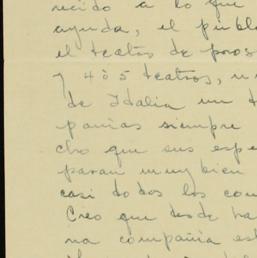 recido a lo que
ayuda, el públ
el teatro de
y 4 ó 5 teatros, u
de Idalia un t
pañías siempre
cho que sus espe
paran muy bien
casi todos los com
Creo que desde ha
na compañía est